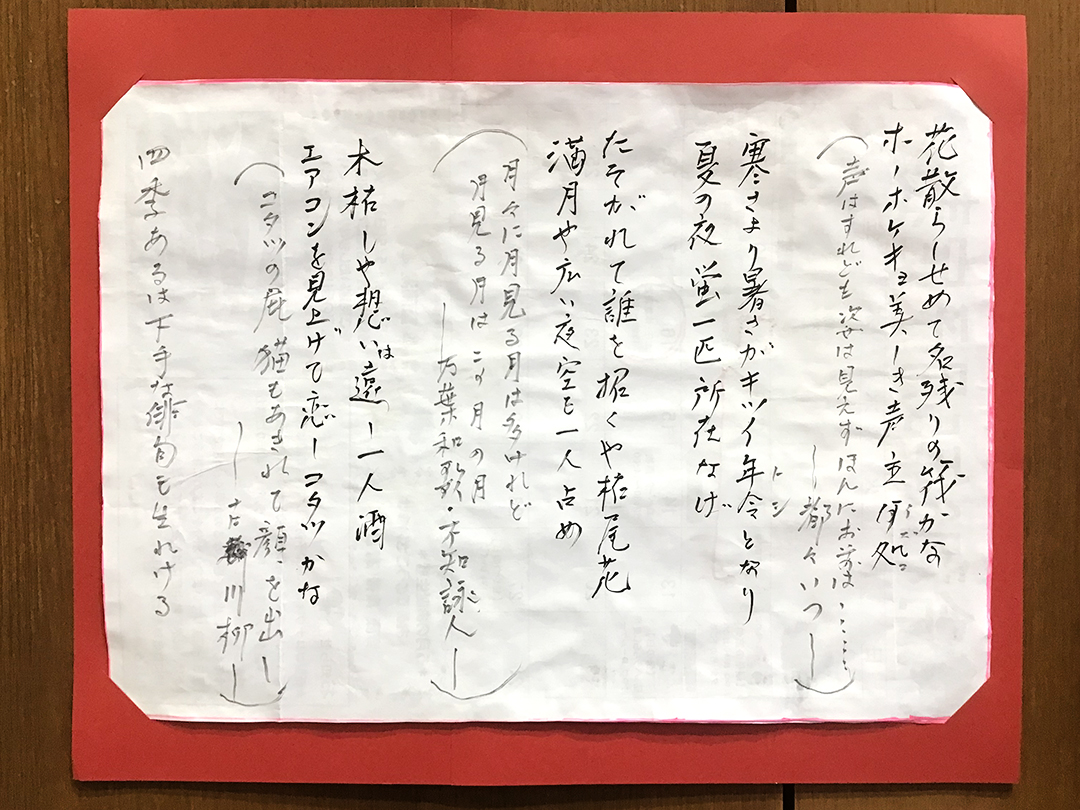 花散らしせめて名残りの筏かな
ホーホケキョ美しき声主何処
(声はすれども姿は見えずほんにお前は・・・・・
ー都々いつー)
寒さより暑さがキツイ年令となり
トシ
夏の夜蛍一匹所在なげ
たそがれて誰を招くや枯尾花
満月や広い夜空を一人占め
(月々に月見る月は多けれど
月見る月はこの月の月
ー万葉和歌・不知詠人ー)
木枯しや想いは遠し一人酒
エアコンを見上げて恋しコタツかな
(コタツの屁猫もあきれて顔を出し
ー古川柳ー)
四季あるは下手な俳句も生れける